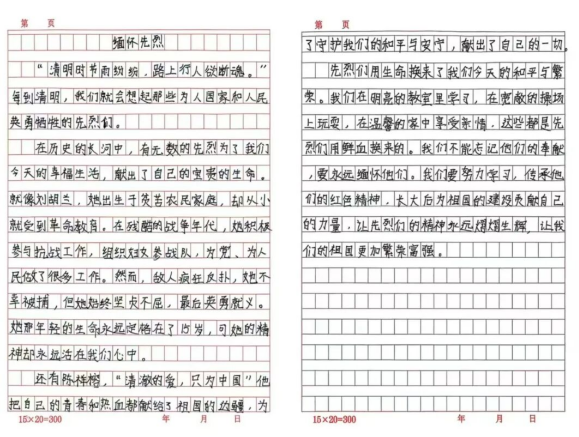 第 页
缅怀先烈
“清明时节雨纷纷，路上行人欲断魂。”
每到清明，我们就会想起那些为人国家和人民
英勇牺牲的先烈们。
在历史的长河中，有无数的先烈为了我们
今天的幸福生活，献出了自己的宝贵的生命。
就像刘胡兰，她出生于贫苦农民家庭，却从小
就受到革命教育。在残酷的战争年代，她积极
参与抗战工作，组织妇女参战队，为党、为人
民做了很多工作。然而，敌人疯狂反扑，她不
幸被捕，但她始终坚贞不屈，最后英勇就义。
她那年轻的生命永远定格在了15岁，可她的精
神却永远活在我们心中。
还有陈祥榕，“清澈的爱，只为中国”他
把自己的青春和热血都献给了祖国的边疆，为
15×20=300 年 月 日
第 页
了守护我们的和平与安宁，献出了自己的一切。
先烈们用生命换来了我们今天的和平与繁
荣。我们在明亮的教室里学习，在宽敞的操场
上玩耍，在温馨的家中享受亲情，这些都是先
烈们用鲜血换来的。我们不能忘记他们的奉献
，要永远缅怀他们。我们要努力学习，传承他
们的红色精神，长大后为祖国的建设贡献自己
的力量，让先烈们的精神永远熠熠生辉，让我
们的祖国更加繁荣富强。
15×20=300 年 月 日